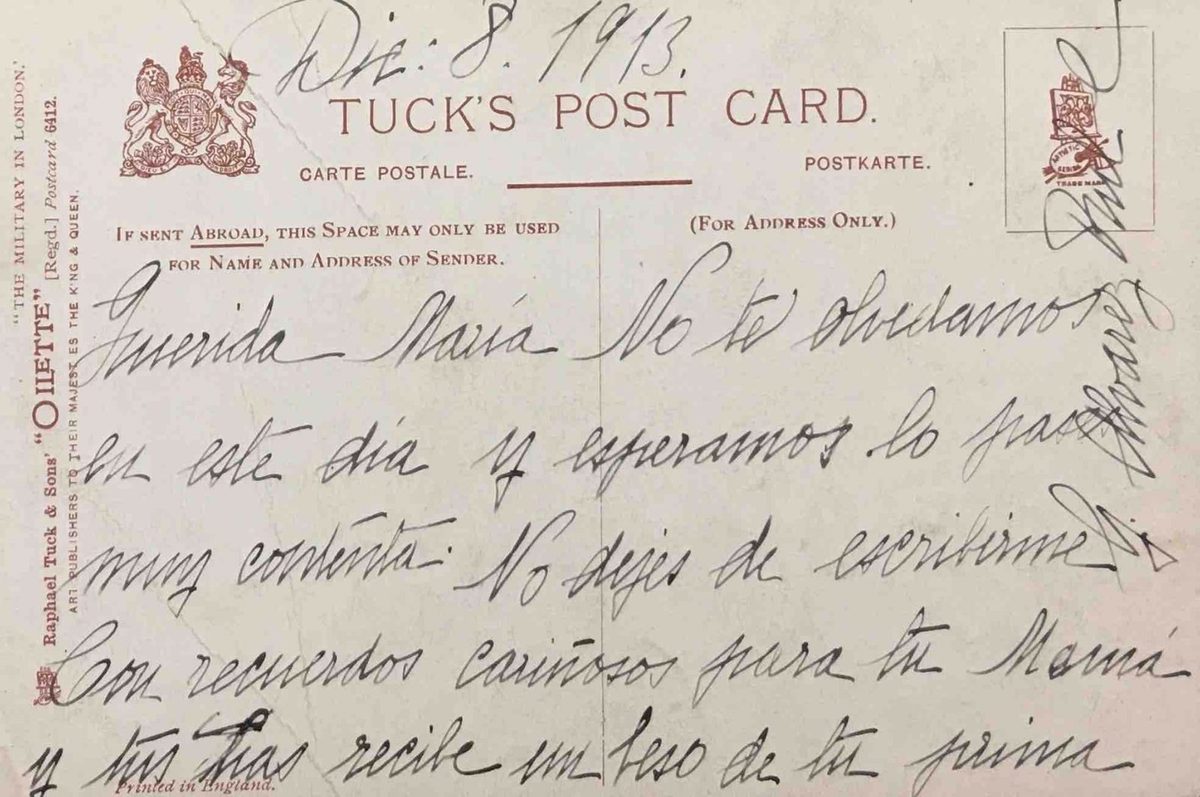 Dic: 8. 1913.
TUCK'S POST CARD.
CARTE POSTALE.
POSTKARTE.
IF SENT ABROAD, THIS SPACE MAY ONLY BE USED
FOR NAME AND ADDRESS OF SENDER.
(FOR ADDRESS ONLY.)
TRADE MARK
"THE MILITARY IN LONDON."
Raphael Tuck & Sons' "OILETTE" [Regd.] Postcard 6412.
ART PUBLISHERS TO THEIR MAJESTIES THE KING & QUEEN.
Querida María No te olvidamos
en este día y esperamos lo pases
muy contenta. No dejes de escribirme
Con recuerdos cariñosos para tu Mamá
y tus tías recibe un beso de tu prima
Alvarez
Printed in England.